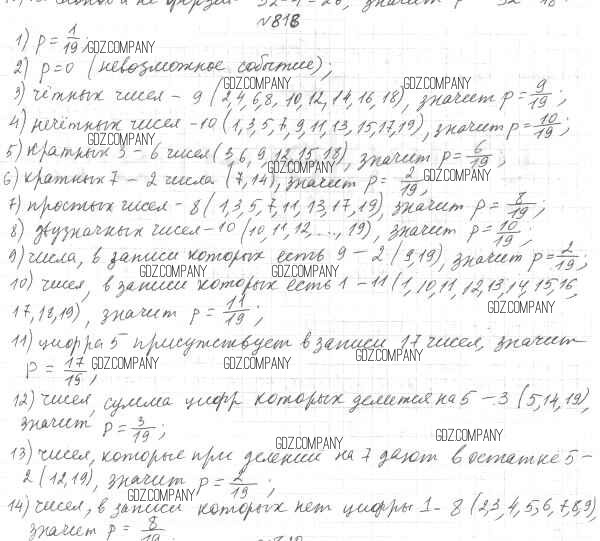 №818
1) p = 1/19; GDZ.COMPANY
2) p=0 (невозможное событие);
GDZ.COMPANY GDZ.COMPANY
3) чётных чисел - 9 (2,4,6,8, 10,12,14,16,18), значит p = 9/19;
4) нечётных чисел - 10 (1,3,5,7,9,11,13,15,17,19), значит p = 10/19;
GDZ.COMPANY
5) кратных 3 - 6 чисел (3,6,9,12,15,18), значит p = 6/19;
GDZ.COMPANY
6) кратных 7 - 2 числа (7,14), значит p = 2/19; GDZ.COMPANY
7) простых чисел - 8 (1,3,5,7,11,13,17,19), значит p = 8/19;
8) двузначных чисел - 10 (10,11,12,..., 19), значит p = 10/19;
9) числа, в записи которых есть 9 - 2 (9,19), значит p = 2/19;
GDZ.COMPANY GDZ.COMPANY
10) чисел, в записи которых есть 1 - 11 (1,10,11,12,13,14,15,16,
GDZ.COMPANY
17,18,19), значит p = 11/19;
11) цифра 5 присутствует в записи 17 чисел, значит
GDZ.COMPANY
p = 17/19; GDZ.COMPANY GDZ.COMPANY
12) чисел, сумма цифр которых делится на 5 - 3 (5,14,19),
значит p = 3/19;
GDZ.COMPANY GDZ.COMPANY
13) чисел, которые при делении на 7 дают в остатке 5 -
2 (12,19), значит p = 2/19;
GDZ.COMPANY
14) чисел, в записи которых нет цифры 1 - 8 (2,3,4,5,6,7,8,9),
значит p = 8/19